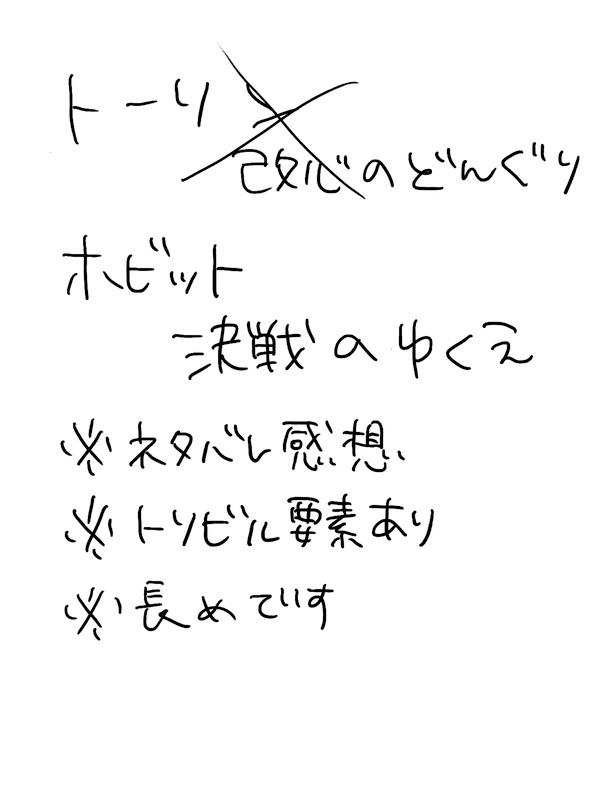 トーリン
改心のどんぐり
ホビット
決戦のゆくえ
※ネタバレ感想
※トリビル要素あり
※長めです